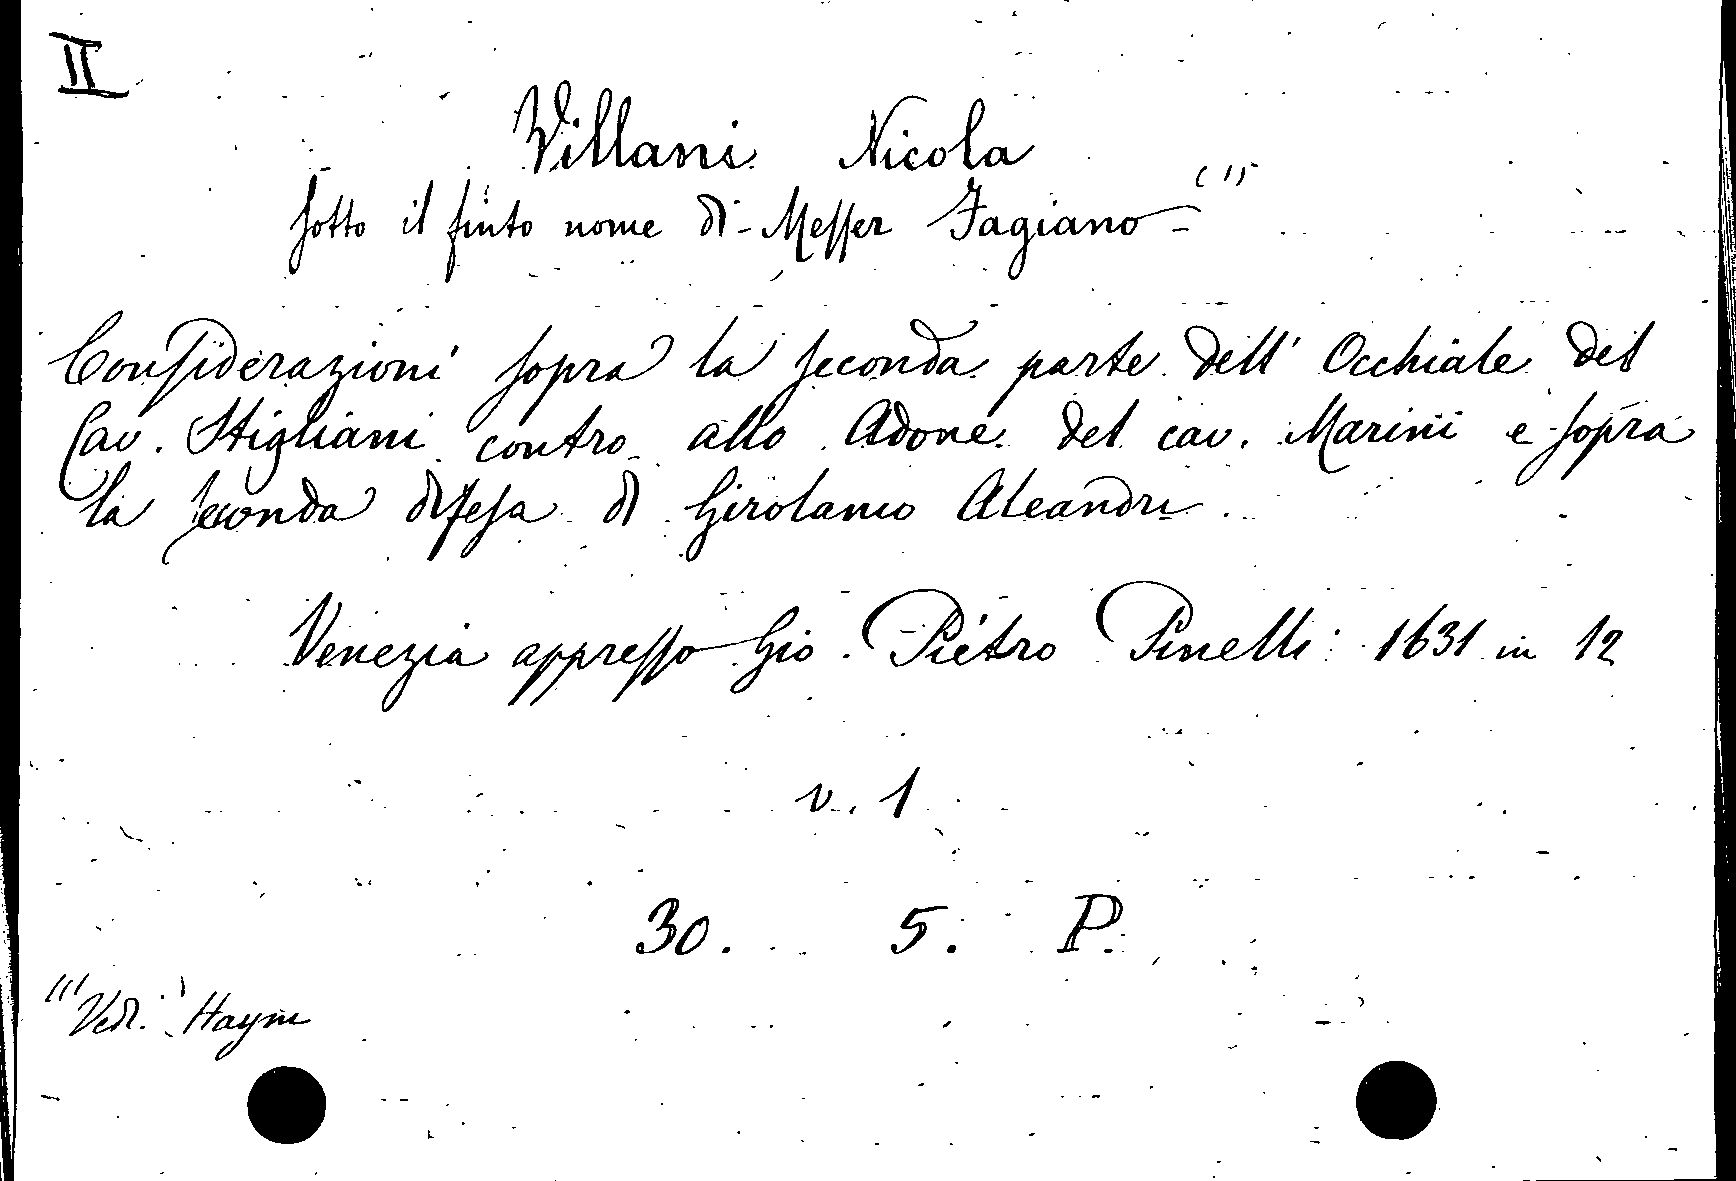 II
Villani Nicola
sotto il finto nome di Messer Fagiano (1)
Considerazioni sopra la seconda parte dell' Occhiale del
Cav. Stigliani contro allo Adone del cav. Marini e sopra
la seconda difesa di Girolamo Aleandri.
Venezia appresso Gio. Pietro Pinelli 1631 in 12
v. 1
30. 5. P.
(1) Vedi. Haym